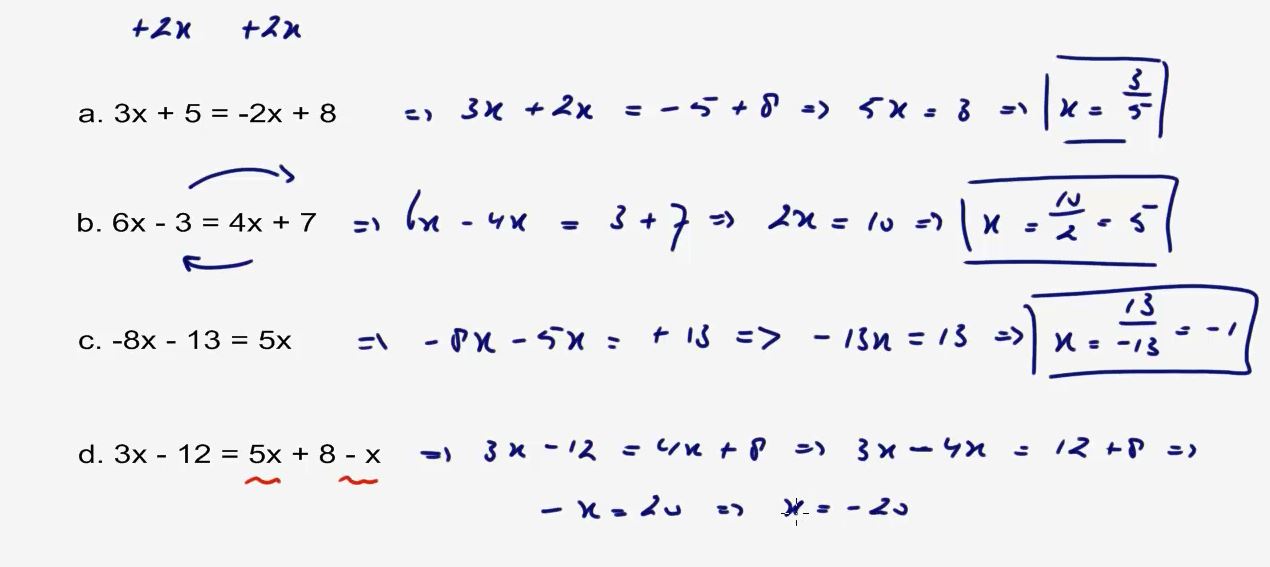 +2x +2x
a. 3x + 5 = -2x + 8 => 3x + 2x = - 5 + 8 => 5x = 3 => x = 3/5
b. 6x - 3 = 4x + 7 => 6x - 4x = 3 + 7 => 2x = 10 => x = 10/2 = 5
c. -8x - 13 = 5x => - 8x - 5x = + 13 => - 13x = 13 => x = 13/-13 = -1
d. 3x - 12 = 5x + 8 - x => 3x - 12 = 4x + 8 => 3x - 4x = 12 + 8 =>
- x = 20 => x = - 20